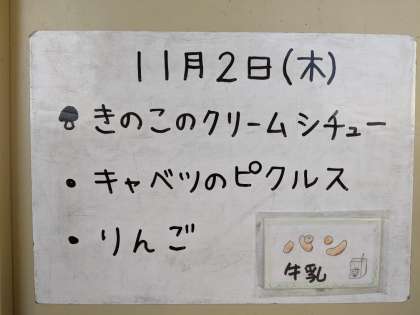 11月2日(木)
きのこのクリームシチュー
・キャベツのピクルス
・りんご
パン
牛乳